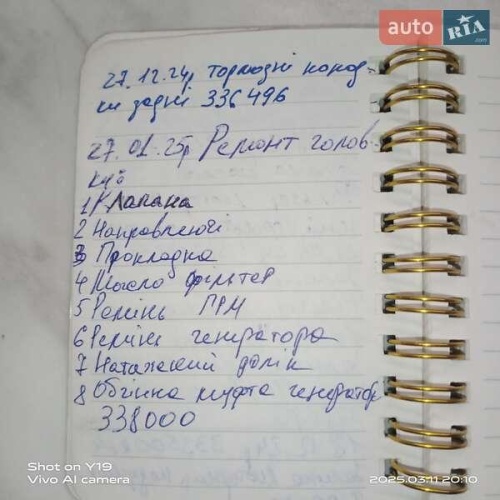 auto RIA .com
27.12.24р тормозні колод-
ки задні 336496
27.01.25р Ремонт голов-
ки:
1 Клапана
2 Направляючі
3 Прокладка
4 Масло фільтер
5 Ремінь ГРМ
6 Ремінь генератора
7 Натяжний ролік
8 Обгінна муфта генератор
338000
Shot on Y19
Vivo AI camera
2025.03.11 20:10